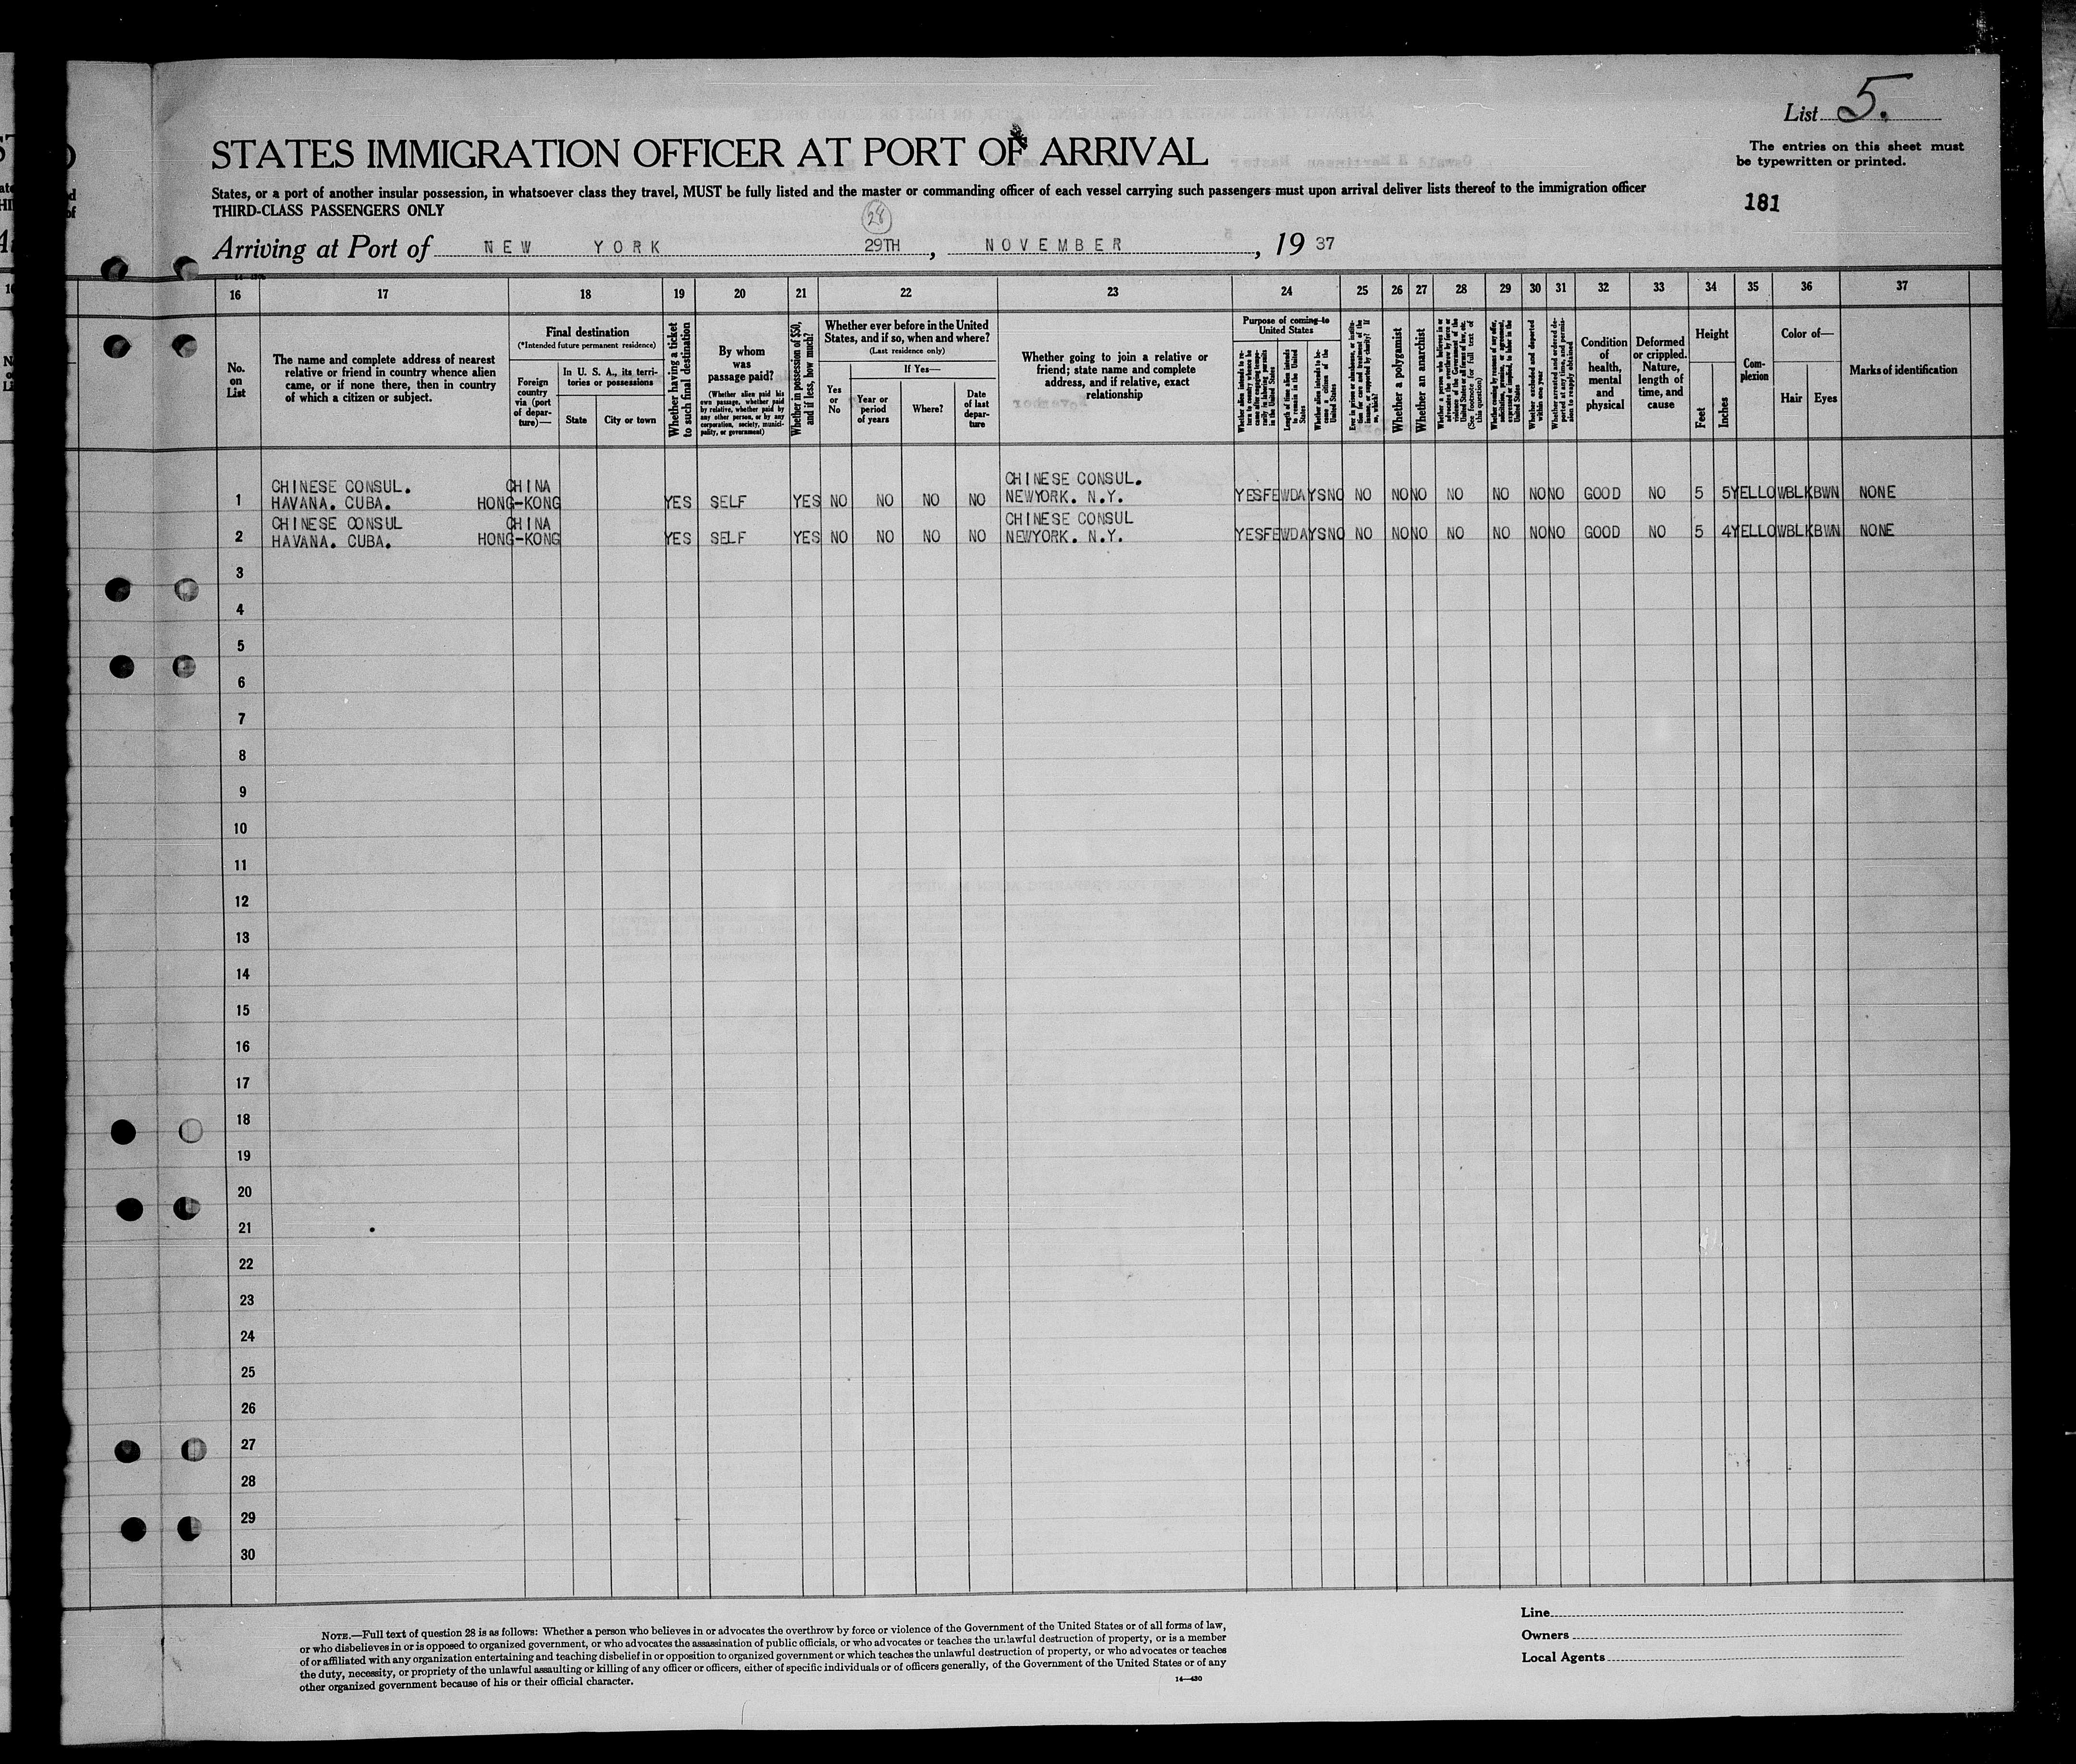 List 5.
STATES IMMIGRATION OFFICER AT PORT OF ARRIVAL
The entries on this sheet must
be typewritten or printed.
States, or a port of another insular possession, in whatsoever class they travel, MUST be fully listed and the master or commanding officer of each vessel carrying such passengers must upon arrival deliver lists thereof to the immigration officer
THIRD-CLASS PASSENGERS ONLY
181
28
Arriving at Port of NEW YORK 29TH, NOVEMBER, 19 37
16 17 18 19 20 21 22 23 24 25 26 27 28 29 30 31 32 33 34 35 36 37
No.
on
List
The name and complete address of nearest
relative or friend in country whence alien
came, or if none there, then in country
of which a citizen or subject.
Final destination
(*Intended future permanent residence)
Foreign
country
via (port
of depar-
ture)—
In U. S. A., its terri-
tories or possessions
State
City or town
Whether having a ticket
to such final destination
By whom
was
passage paid?
(Whether alien paid his
own passage, whether paid
by relative, whether paid by
any other person, or by any
corporation, society, munici-
pality, or government)
Whether in possession of $50,
and if less, how much?
Whether ever before in the United
States, and if so, when and where?
(Last residence only)
Yes
or
No
If Yes—
Year or
period
of years
Where?
Date
of last
depar-
ture
Whether going to join a relative or
friend; state name and complete
address, and if relative, exact
relationship
Purpose of coming to
United States
Length of time alien intends
to remain in the United
States
Whether alien intends to be-
come a citizen of the
United States
Whether a polygamist
Whether an anarchist
Whether excluded and deported
within one year
Condition
of
health,
mental
and
physical
Deformed
or crippled.
Nature,
length of
time, and
cause
Height
Feet
Inches
Com-
plexion
Color of—
Hair
Eyes
Marks of identification
CHINESE CONSUL. CHINA CHINESE CONSUL.
1 HAVANA. CUBA. HONG-KONG YES SELF YES NO NO NO NO NEWYORK. N.Y. YESFEWDAYSNO NO NONO NO NO NONO GOOD NO 5 5YELLOWBLKBWN NONE
CHINESE CONSUL CHINA CHINESE CONSUL
2 HAVANA. CUBA. HONG-KONG YES SELF YES NO NO NO NO NEWYORK. N.Y. YESFEWDAYSNO NO NONO NO NO NONO GOOD NO 5 4YELLOWBLKBWN NONE
3
4
5
6
7
8
9
10
11
12
13
14
15
16
17
18
19
20
21
22
23
24
25
26
27
28
29
30
NOTE.—Full text of question 28 is as follows: Whether a person who believes in or advocates the overthrow by force or violence of the Government of the United States or of all forms of law,
or who disbelieves in or is opposed to organized government, or who advocates the assassination of public officials, or who advocates or teaches the unlawful destruction of property, or is a member
of or affiliated with any organization entertaining and teaching disbelief in or opposition to organized government or which teaches the unlawful destruction of property, or who advocates or teaches
the duty, necessity, or propriety of the unlawful assaulting or killing of any officer or officers, either of specific individuals or of officers generally, of the Government of the United States or of any
other organized government because of his or their official character.
14—430
Line
Owners
Local Agents